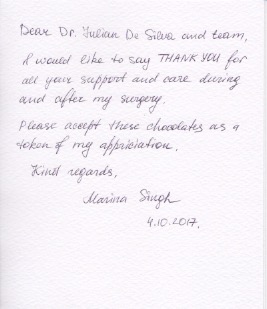 Dear Dr. Julian De Silva and team,
I would like to say THANK YOU for
all your support and care during
and after my surgery.
Please accept these chocolates as a
token of my appriciation.
Kind regards,
Marina Singh
4.10.2017.